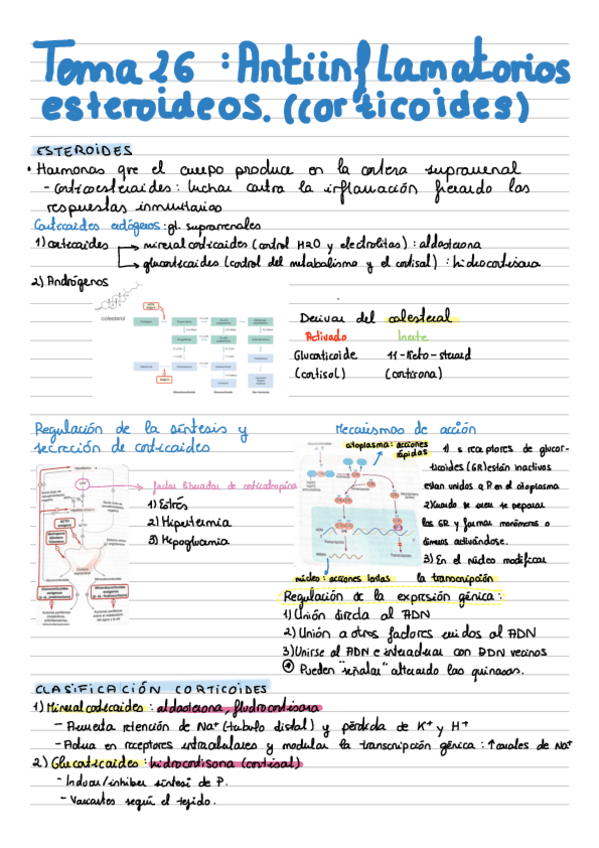 Tema 26 : Antiinflamatorios
esteroideos. (corticoides)
ESTEROIDES
• Hormonas que el cuerpo produce en la corteza suprarrenal
- Corticoesteroides: luchar contra la inflamación frenando las
respuestas inmunitarias
Corticoides endógenos: gl. suprarrenales
1) corticoides → mineralcorticoides (control H2O y electrolitos) : aldosterona
→ glucorticoides (control del metabolismo y el cortisol) : hidrocortisona
2) Andrógenos
colesterol
Derivan del colesterol
Activado Inerte
Glucorticoide 11-Keto-steroid
(cortisol) (cortisona)
Regulación de la síntesis y
secreción de corticoides
factor liberador de corticotropina
1) Estrés
2) Hipertermia
3) Hipoglucemia
Mecanismos de acción
citoplasma: acciones
rápidas
1) s receptores de glucor-
ticoides (GR) están inactivos
están unidos a P en el citoplasma
2) Cuando se unen se separan
los GR y forman monómeros o
dímeros activándose.
3) En el núcleo modifican
la transcripción
núcleo: acciones lentas
Regulación de la expresión génica:
1) Unión directa al ADN
2) Unión a otros factores unidos al ADN
3) Unirse al ADN e interactuar con ADN vecinos
④ Pueden "señalar" alterando las quinasas.
CLASIFICACIÓN CORTICOIDES
1) Mineralcorticoides : aldosterona, fludrocortisona
- Aumenta retención de Na+ (túbulo distal) y pérdida de K+ y H+
- Actúa en receptores intracelulares y modular la transcripción génica: ↑canales de Na+
2) Glucorticoides : hidrocortisona (cortisol)
- Inducir/inhibir síntesi de P.
- Variantes según el tejido.